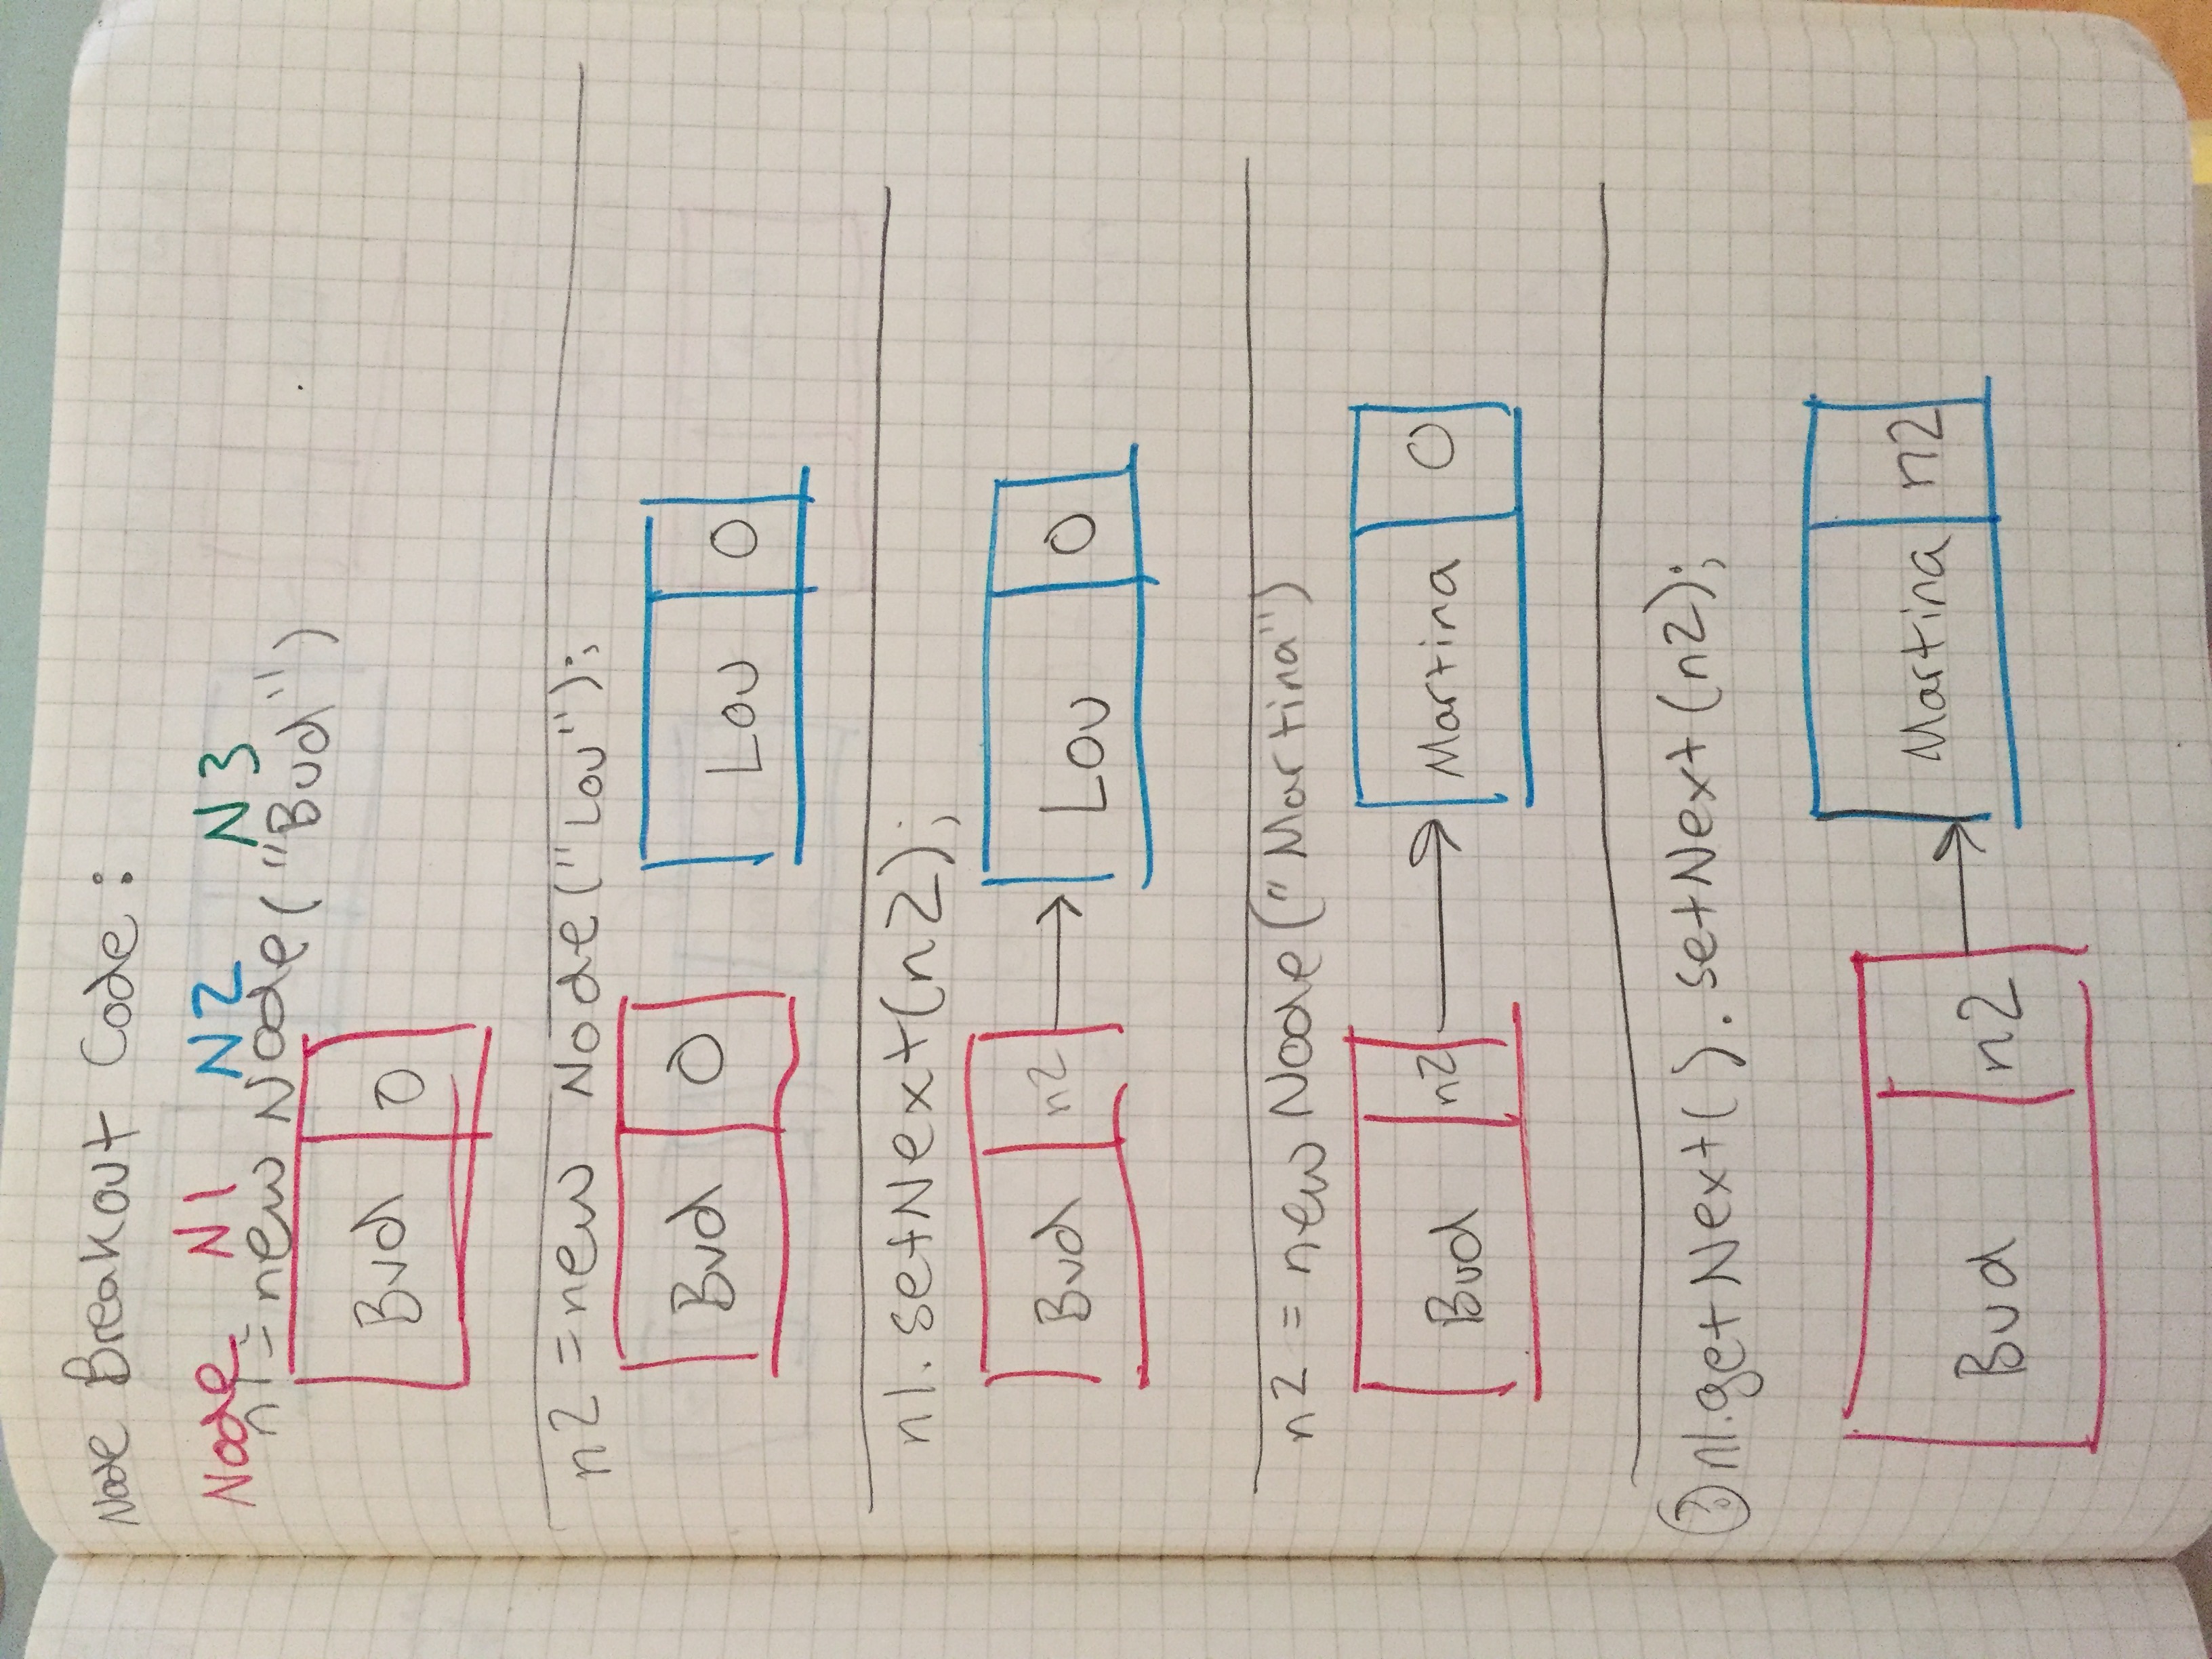 Node Breakout Code:
Node N1 N2 N3
n1 = new Node("Bud")
Bud 0
n2 = new Node("Lou");
Bud 0 Lou 0
n1.setNext(n2);
Bud n2 Lou 0
n2 = new Node("Martina")
Bud n2 Martina 0
? n1.getNext().setNext(n2);
Bud n2 Martina n2